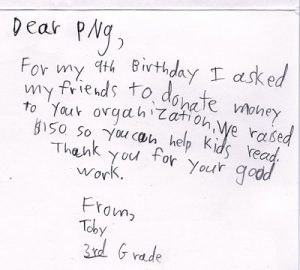 Dear PNg,
For my 9th Birthday I asked
my friends to donate money
to your organization. We raised
$150 so you can help kids read.
Thank you for your good
work.
From,
Toby
3rd Grade